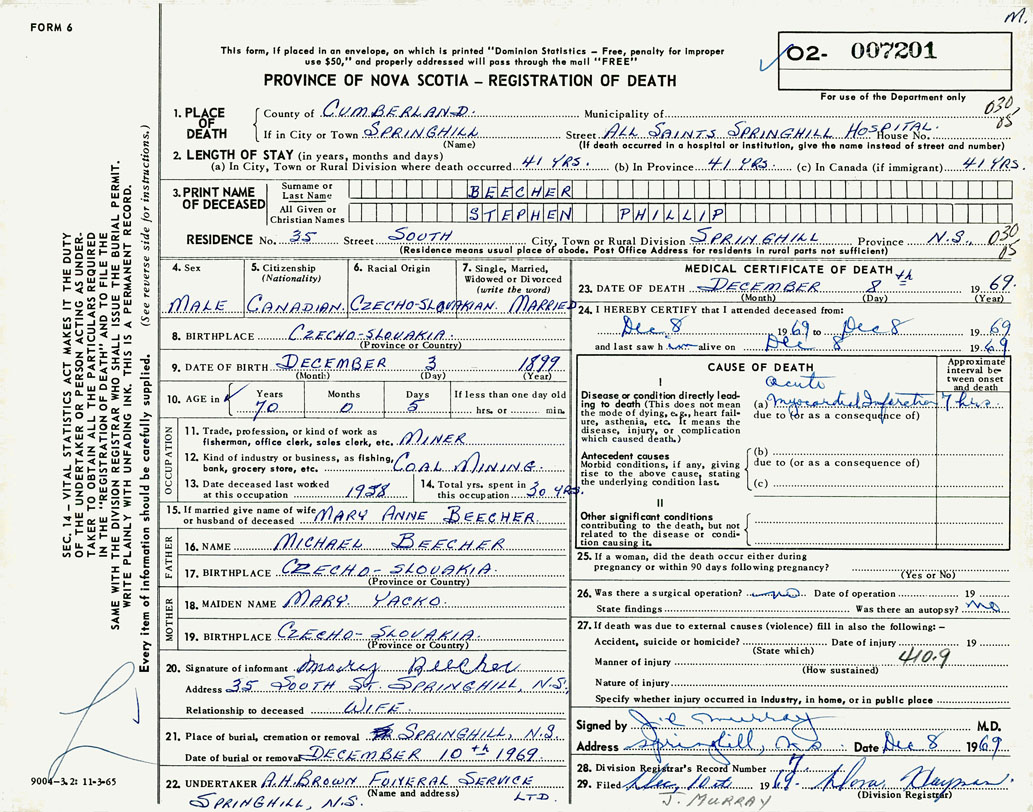 M.
FORM 6
This form, if placed in an envelope, on which is printed "Dominion Statistics – Free, penalty for improper
use $50," and properly addressed will pass through the mail "FREE"
02- 007201
PROVINCE OF NOVA SCOTIA – REGISTRATION OF DEATH
For use of the Department only
1. PLACE OF DEATH
County of CUMBERLAND. Municipality of 030/05
If in City or Town SPRINGHILL Street ALL SAINTS SPRINGHILL HOSPITAL. House No.
(Name) (If death occurred in a hospital or institution, give the name instead of street and number)
2. LENGTH OF STAY (in years, months and days)
(a) In City, Town or Rural Division where death occurred 41 YRS. (b) In Province 41 YRS. (c) In Canada (if immigrant) 41 YRS.
3. PRINT NAME OF DECEASED
Surname or Last Name BEECHER
All Given or Christian Names STEPHEN PHILLIP
RESIDENCE No. 35 Street SOUTH City, Town or Rural Division SPRINGHILL Province N.S. 030/05
(Residence means usual place of abode. Post Office Address for residents in rural parts not sufficient)
4. Sex
MALE
5. Citizenship (Nationality)
CANADIAN.
6. Racial Origin
CZECHO-SLOVAKIAN.
7. Single, Married, Widowed or Divorced (write the word)
MARRIED
8. BIRTHPLACE CZECHO-SLOVAKIA.
(Province or Country)
9. DATE OF BIRTH DECEMBER 3 1899
(Month) (Day) (Year)
10. AGE in ✓ Years 70 Months 0 Days 5 If less than one day old hrs. or min.
OCCUPATION
11. Trade, profession, or kind of work as
fisherman, office clerk, sales clerk, etc. MINER
12. Kind of industry or business, as fishing,
bank, grocery store, etc. COAL MINING.
13. Date deceased last worked
at this occupation 1958
14. Total yrs. spent in
this occupation 30 YRS.
15. If married give name of wife
or husband of deceased MARY ANNE BEECHER.
FATHER
16. NAME MICHAEL BEECHER
17. BIRTHPLACE CZECHO-SLOVAKIA.
(Province or Country)
MOTHER
18. MAIDEN NAME MARY YACKO.
19. BIRTHPLACE CZECHO-SLOVAKIA.
(Province or Country)
20. Signature of informant Mary Beecher
Address 35 SOUTH ST. SPRINGHILL, N.S.
Relationship to deceased WIFE.
21. Place of burial, cremation or removal SPRINGHILL, N.S.
Date of burial or removal DECEMBER 10th 1969.
22. UNDERTAKER A.H. BROWN FUNERAL SERVICE LTD.
(Name and address)
SPRINGHILL, N.S.
MEDICAL CERTIFICATE OF DEATH
23. DATE OF DEATH DECEMBER 8th 1969.
(Month) (Day) (Year)
24. I HEREBY CERTIFY that I attended deceased from:
Dec 8 1969 to Dec 8 1969
and last saw him alive on Dec 8 1969.
CAUSE OF DEATH
Approximate interval between onset and death
I
Disease or condition directly leading to death (This does not mean the mode of dying, e.g., heart failure, asthenia, etc. It means the disease, injury, or complication which caused death.)
Acute
(a) Myocardial Infarction 7 hrs
due to (or as a consequence of)
Antecedent causes
Morbid conditions, if any, giving rise to the above cause, stating the underlying condition last.
(b)
due to (or as a consequence of)
(c)
II
Other significant conditions
contributing to the death, but not related to the disease or condition causing it.
25. If a woman, did the death occur either during
pregnancy or within 90 days following pregnancy?
(Yes or No)
26. Was there a surgical operation? no Date of operation 19
State findings Was there an autopsy? no
27. If death was due to external causes (violence) fill in also the following: –
Accident, suicide or homicide? Date of injury 19
(State which)
Manner of injury 410.9
(How sustained)
Nature of injury
Specify whether injury occurred in industry, in home, or in public place
Signed by J.C. Murray M.D.
Address Springhill, NS Date Dec 8 1969
28. Division Registrar's Record Number 7
29. Filed Dec, 10th 1969
(Division Registrar)
J. MURRAY
SEC. 14 – VITAL STATISTICS ACT MAKES IT THE DUTY
OF THE UNDERTAKER OR PERSON ACTING AS UNDER-
TAKER TO OBTAIN ALL THE PARTICULARS REQUIRED
IN THE "REGISTRATION OF DEATH" AND TO FILE THE
SAME WITH THE DIVISION REGISTRAR WHO SHALL ISSUE THE BURIAL PERMIT.
WRITE PLAINLY WITH UNFADING INK. THIS IS A PERMANENT RECORD.
Every item of information should be carefully supplied. (See reverse side for instructions.)
9004-3.2: 11-3-65